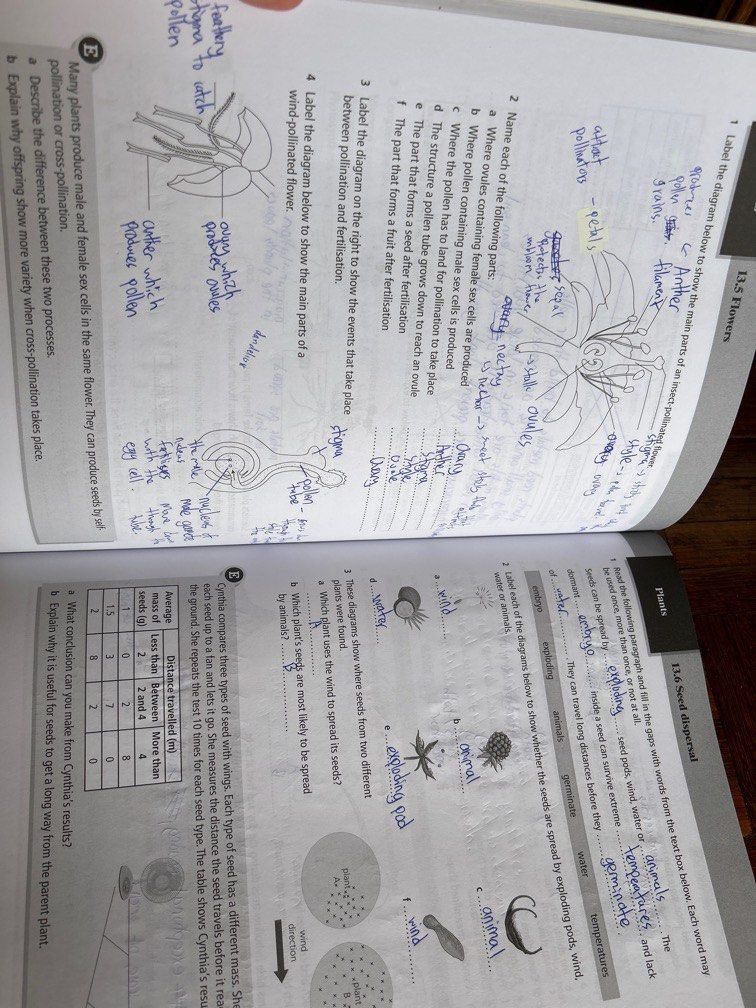 13.5 Flowers
1 Label the diagram below to show the main parts of an insect-pollinated flower.
produces ← Anther
pollen
grains.
filament
attract
pollinators
- petals
sepal
protects the
flower
stalk
ovules
stigma
style
ovary
nectary
2 Name each of the following parts:
a Where ovules containing female sex cells are produced
ovary
b Where pollen containing male sex cells is produced
Anther
c Where the pollen has to land for pollination to take place
Stigma
d The structure a pollen tube grows down to reach an ovule
Style
e The part that forms a seed after fertilisation
ovule
f The part that forms a fruit after fertilisation
Ovary
3 Label the diagram on the right to show the events that take place
between pollination and fertilisation.
stigma
pollen
tube
nucleus of
male gamete
the male
fertilises
with the
egg cell.
4 Label the diagram below to show the main parts of a
wind-pollinated flower.
feathery
stigma to
catch
pollen
ovary which
produces ovules
anther which
produces pollen
E
Many plants produce male and female sex cells in the same flower. They can produce seeds by self-
pollination or cross-pollination.
a Describe the difference between these two processes.
b Explain why offspring show more variety when cross-pollination takes place.
Plants
13.6 Seed dispersal
1 Read the following paragraph and fill in the gaps with words from the text box below. Each word may
be used once, more than once, or not at all.
Seeds can be spread by exploding seed pods, wind, water or animals. The
dormant embryo inside a seed can survive extreme temperatures and lack
of water. They can travel long distances before they germinate.
embryo exploding animals germinate water temperatures
2 Label each of the diagrams below to show whether the seeds are spread by exploding pods, wind,
water or animals.
a wind
b animal
c animal
d water
e exploding pod
f wind
3 These diagrams show where seeds from two different
plants were found.
a Which plant uses the wind to spread its seeds?
A
b Which plant's seeds are most likely to be spread
by animals? B
plant
A
plant
B
wind
direction
E
Cynthia compares three types of seed with wings. Each type of seed has a different mass. She
each seed up to a fan and lets it go. She measures the distance the seed travels before it
the ground. She repeats the test 10 times for each seed type. The table shows Cynthia's
Average mass of seeds (g) Distance travelled (m)
Less than 2 Between 2 and 4 More than 4
1 0 2 8
1.5 3 7 0
2 8 2 0
a What conclusion can you make from Cynthia's results?
b Explain why it is useful for seeds to get a long way from the parent plant.